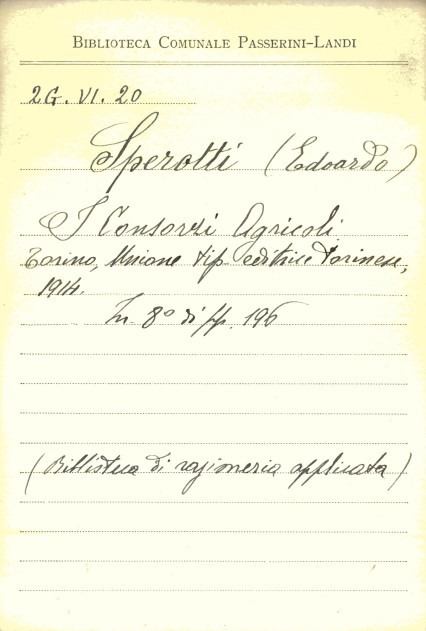 BIBLIOTECA COMUNALE PASSERINI-LANDI
2G. VI. 20
Sperotti (Edoardo)
I Consorzi Agricoli
Torino, Unione tip. editrice torinese,
1914.
In 8° di pp. 196
(Biblioteca di ragioneria applicata)